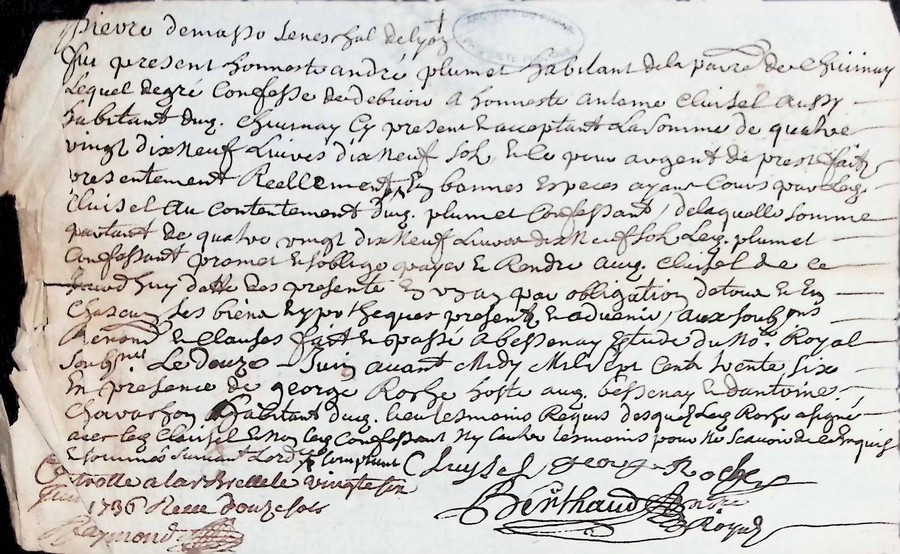 Pierre demasso seneschal de lyon
fut present honneste andré plumet habitant de la parre de Chuirnay
Lequel de gré Confesse de debvoir a honneste antoine Cluisel aussy
habitant dug. Chuirnay Cy present et acceptant La somme de quatre
vingt dix Neuf Livres dix neuf sols et ce pour argent de prest fait
presentement Reellement en bonnes Especes ayant Cours par Leq.
Cluisel au Contentement dug. plumet Confessant, de laquelle somme
partant de quatre vingt dix Neuf Livres dix neuf sols Leq. plumet
Confessant promet et soblige payer et Rendre auq. Cluisel de ce
jourdhuy datte des presente en un an par obligation de tous et Un
Chascun ses biens hypotheques presents et advenir, aux soubons
Renonc et Clauses fait et passé a bessenay Estude du No.re Royal
soubsné Le douze Juin avant Midy Mil sept cents trente six
En presence de george Roche hoste auq. bessenay et dantoine
Chavashon habitant dug. lieu tesmoins Requis desquels Leq Roche a signé
avec leq Cluisel et Non leq Confessant Ny lautre tesmoins pour Ne scavoir de ce Enquis
et sommés suivant Lord.ce
Cluysel george Roche
Controlle a larbrelle le vingt six
juin 1736 Receu douze sols
Raymond
Berthaud No.re Royal